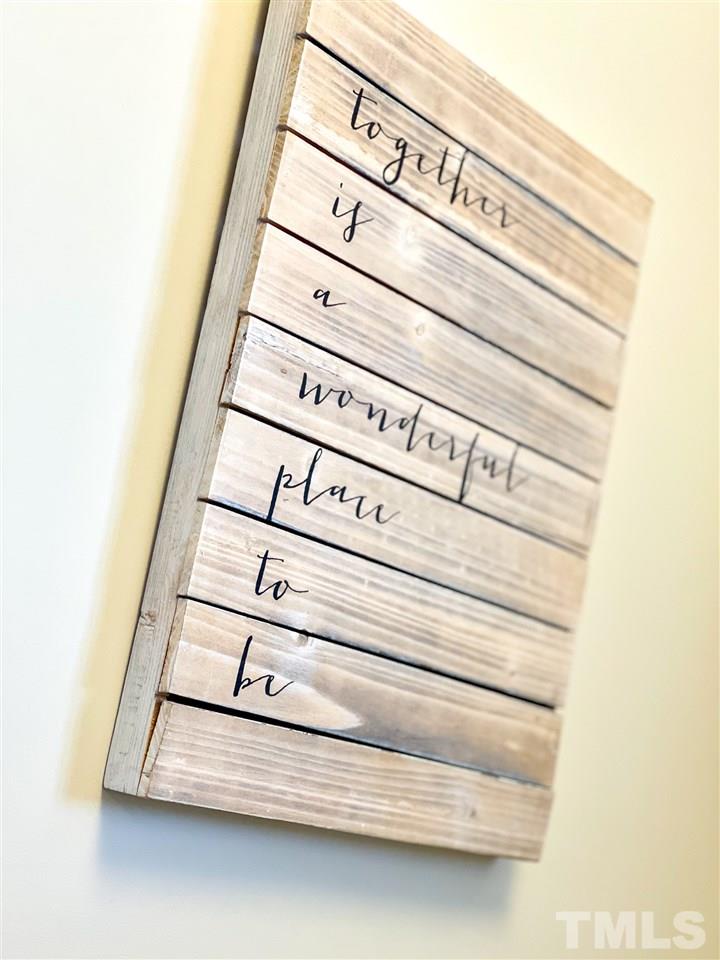 together
is
a
wonderful
place
to
be
TMLS